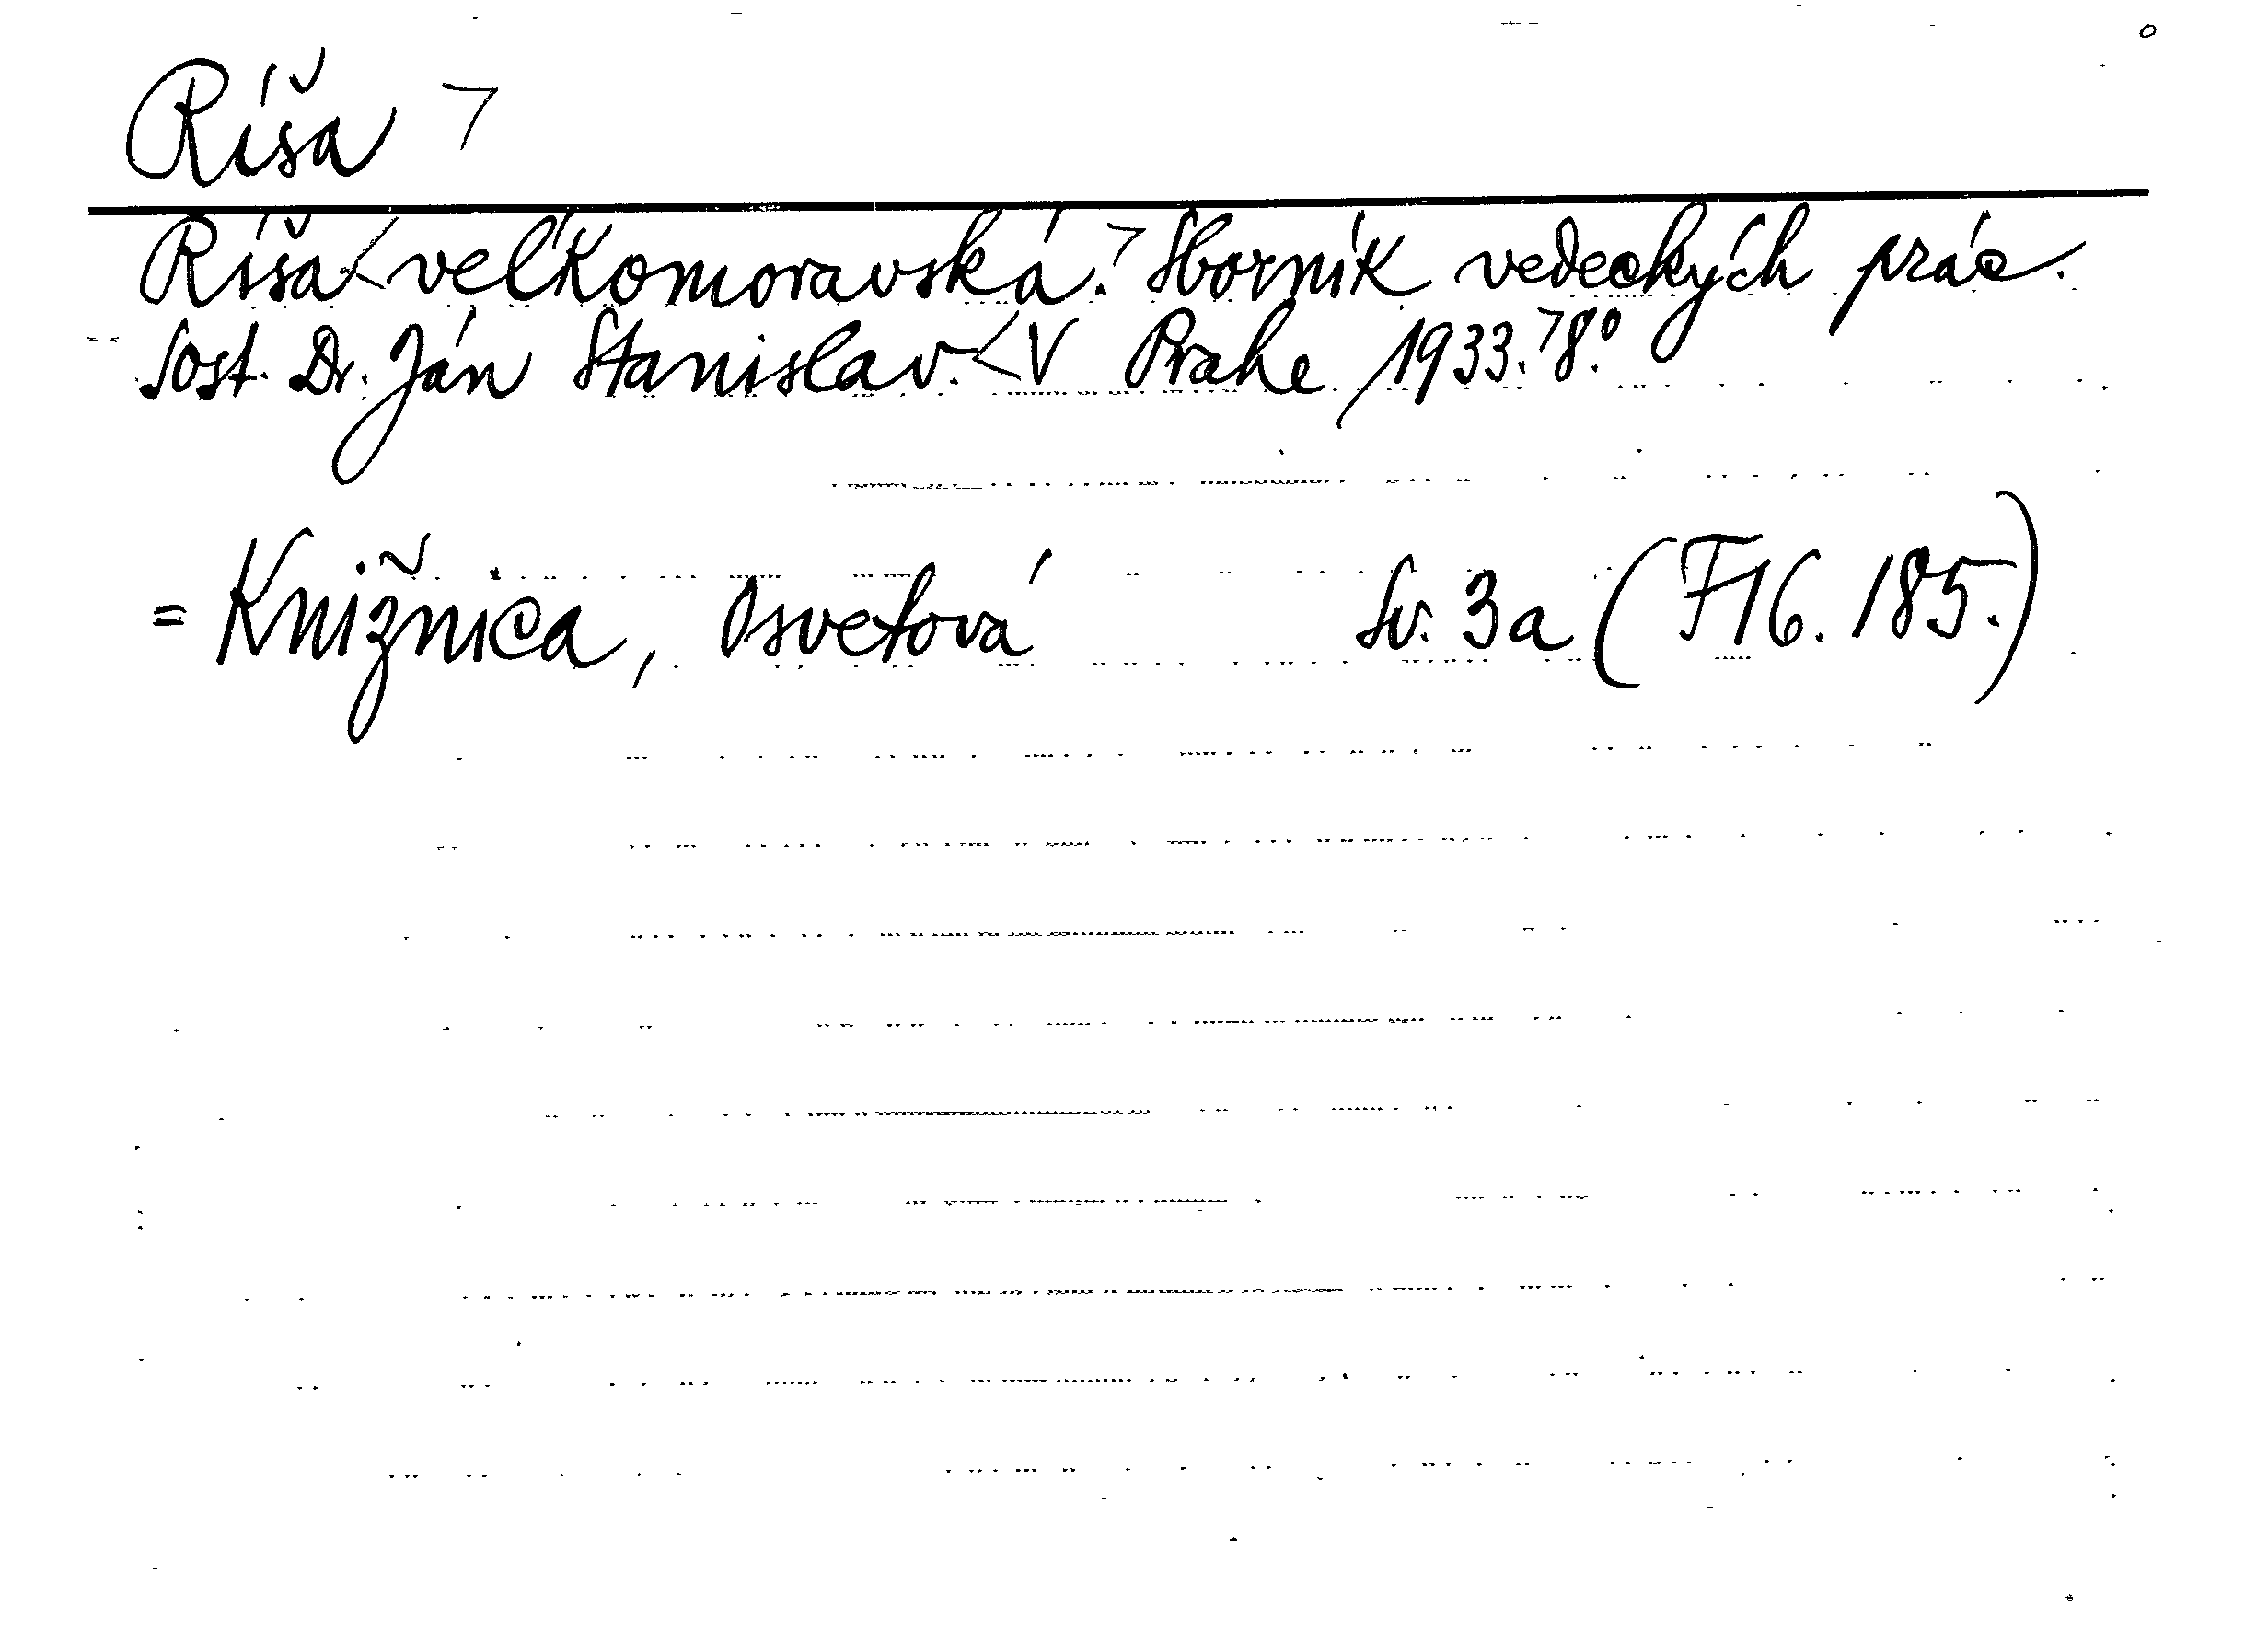 Ríša ㄱ
Ríša<veľkomoravská.ㄱ Sborník vedeckých prác.
Sost. Dr. Ján Stanislav.<V Prahe 1933.ㄱ8.°
= Knižnica, Osvetová Sv. 3a (F 16. 185.)